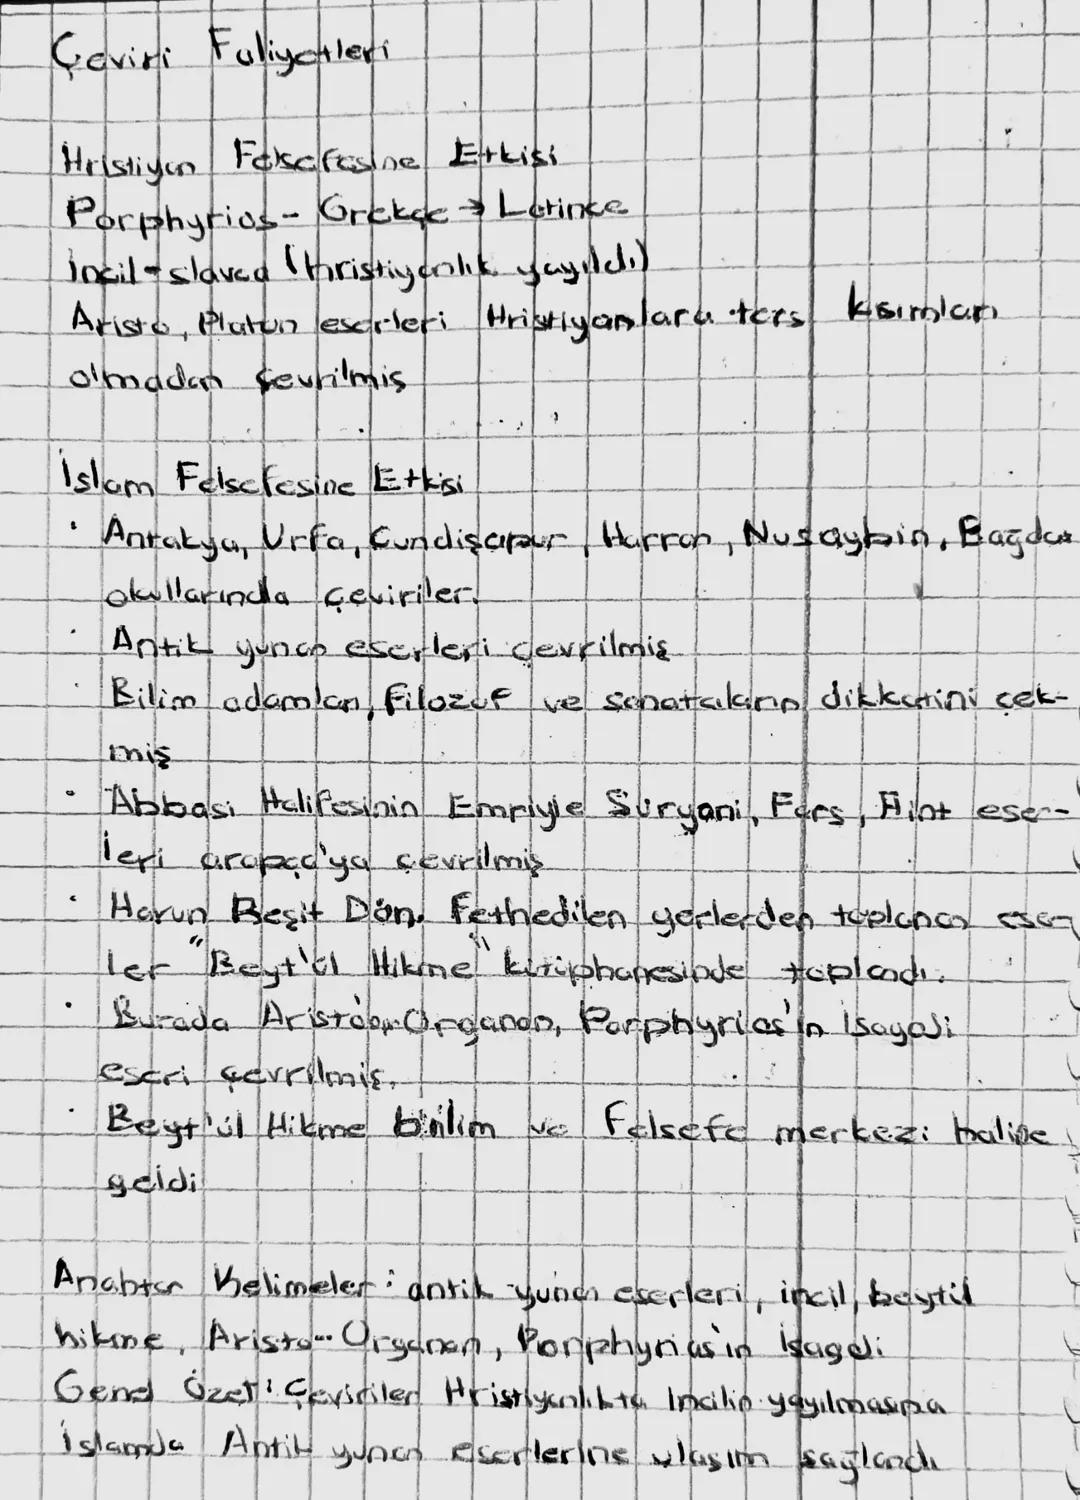 Çeviri Faliyetleri
Hristiyan Felsefesine Etkisi
Porphyrios - Grekçe → Latince
İncil - slavca (Hristiyanlık yayıldı)
Aristo, Platon eserleri Hristiyanlara ters kısımları
olmadan çevrilmiş
İslam Felsefesine Etkisi
• Antakya, Urfa, Cundişapur, Harran, Nusaybin, Bağdat
okullarında çeviriler.
• Antik yunan eserleri çevrilmiş
• Bilim adamları, filozof ve sanatçıların dikkatini çek-
miş
• Abbasi Halifesinin Emriyle Süryani, Fars, Hint eser-
leri arapça'ya çevrilmiş
• Harun Reşit Dön. Fethedilen yerlerden toplanan eser
ler "Beyt'ül Hikme" kütüphanesinde toplandı.
• Burada Organon, Porphyrios'in İsagoji
eseri çevrilmiş.
• Beyt'ül Hikme bilim ve Felsefe merkezi haline
geldi
Anahtar Kelimeler: antik yunan eserleri, incil, beytül
hikme, Aristo - Organon, Porphyrios'in İsagoji
Genel Özet: Çeviriler Hristiyanlıkta İncilin yayılmasına
İslamda Antik yunan eserlerine ulaşım sağlandı